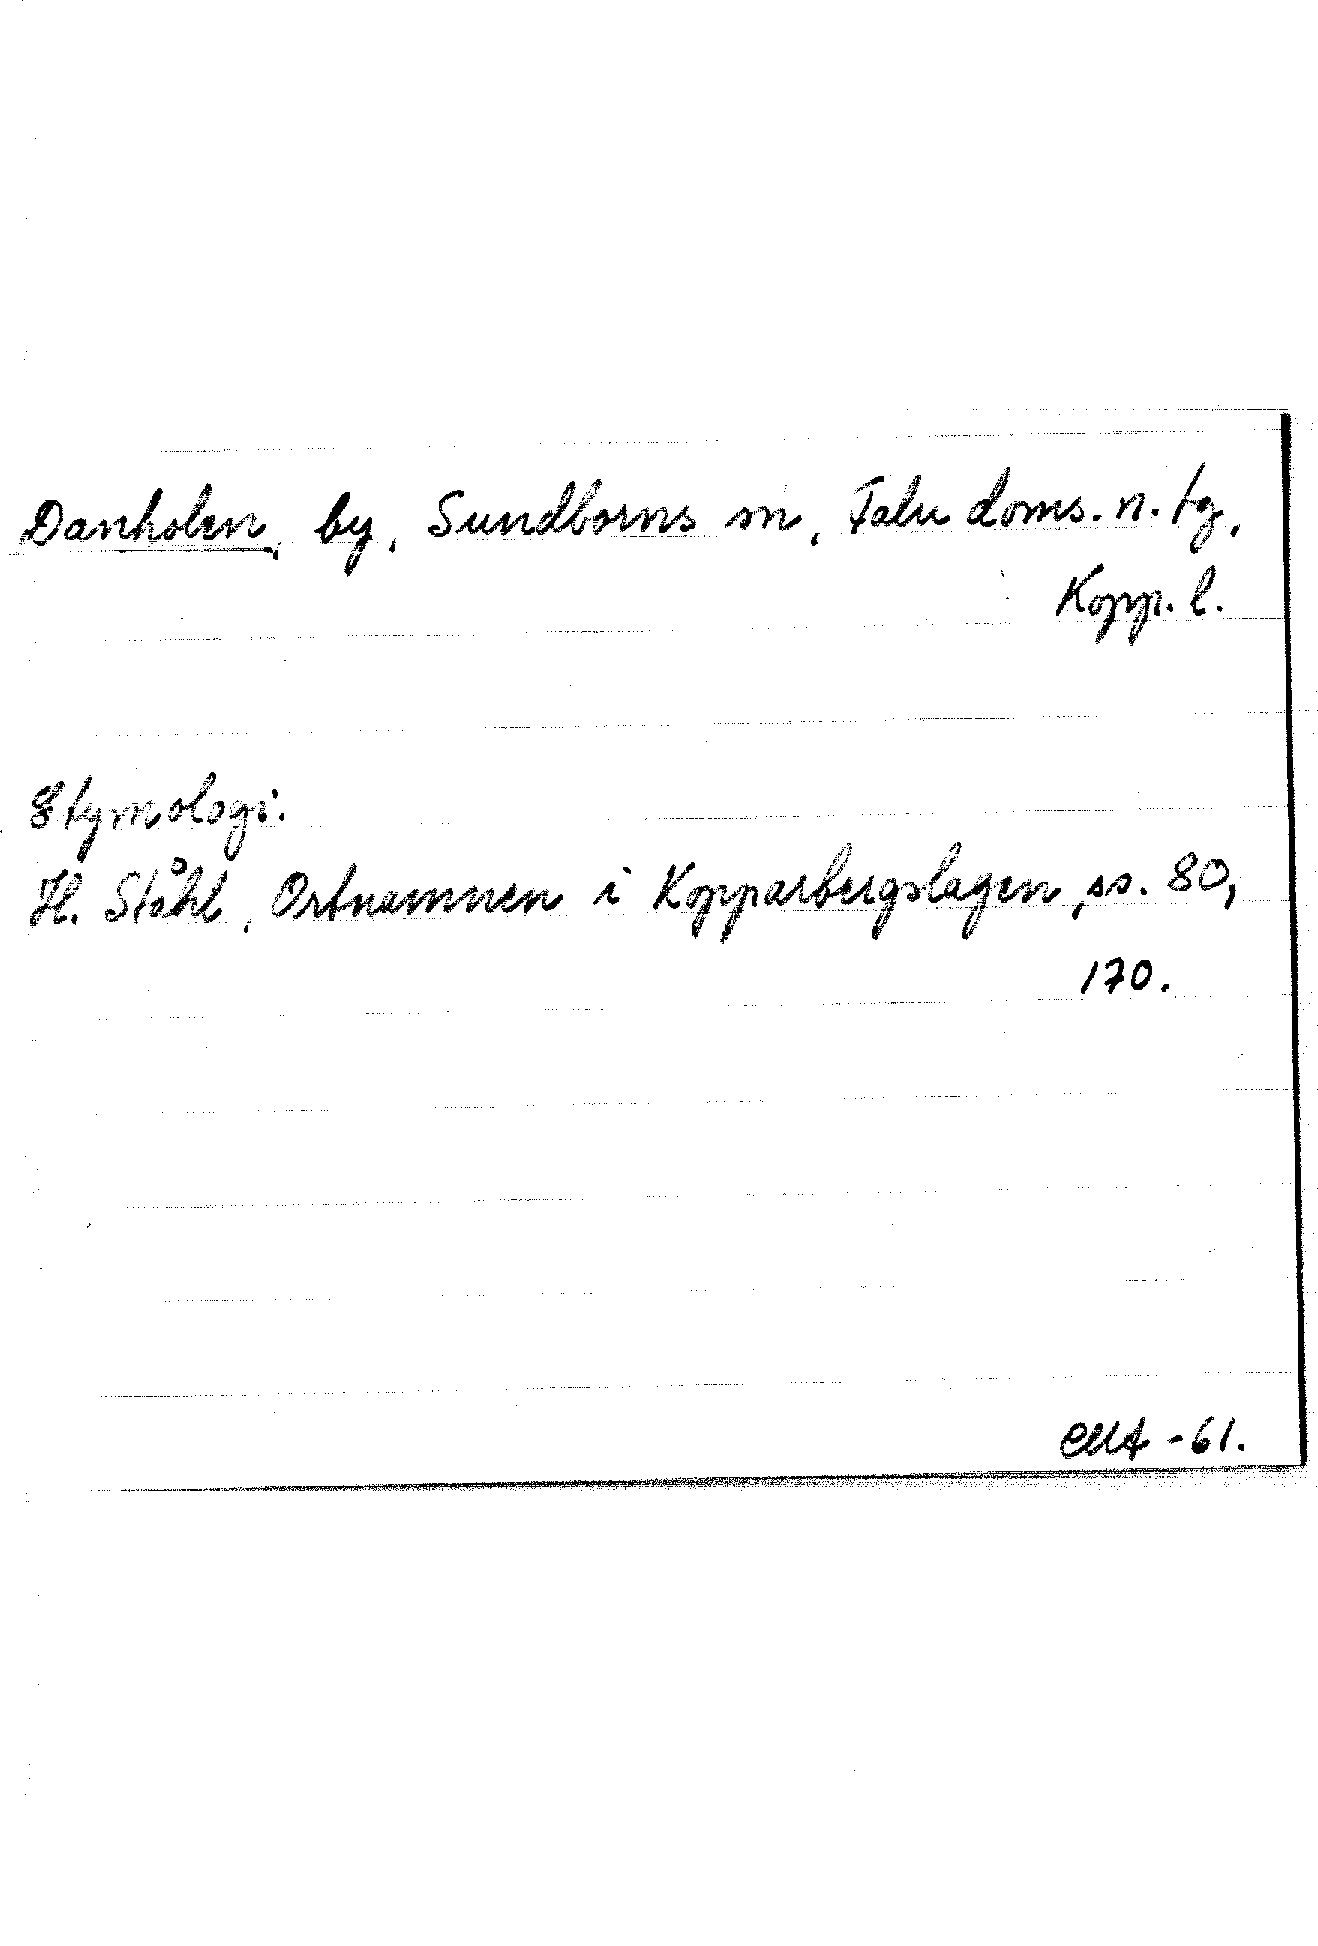 Danholen, by, Sundborns sn, Falu doms. n. tg,
Kopp. l.
Etymologi:
H. Ståhl, Ortnamnen i Kopparbergslagen, ss. 80,
170.
EMA -61.